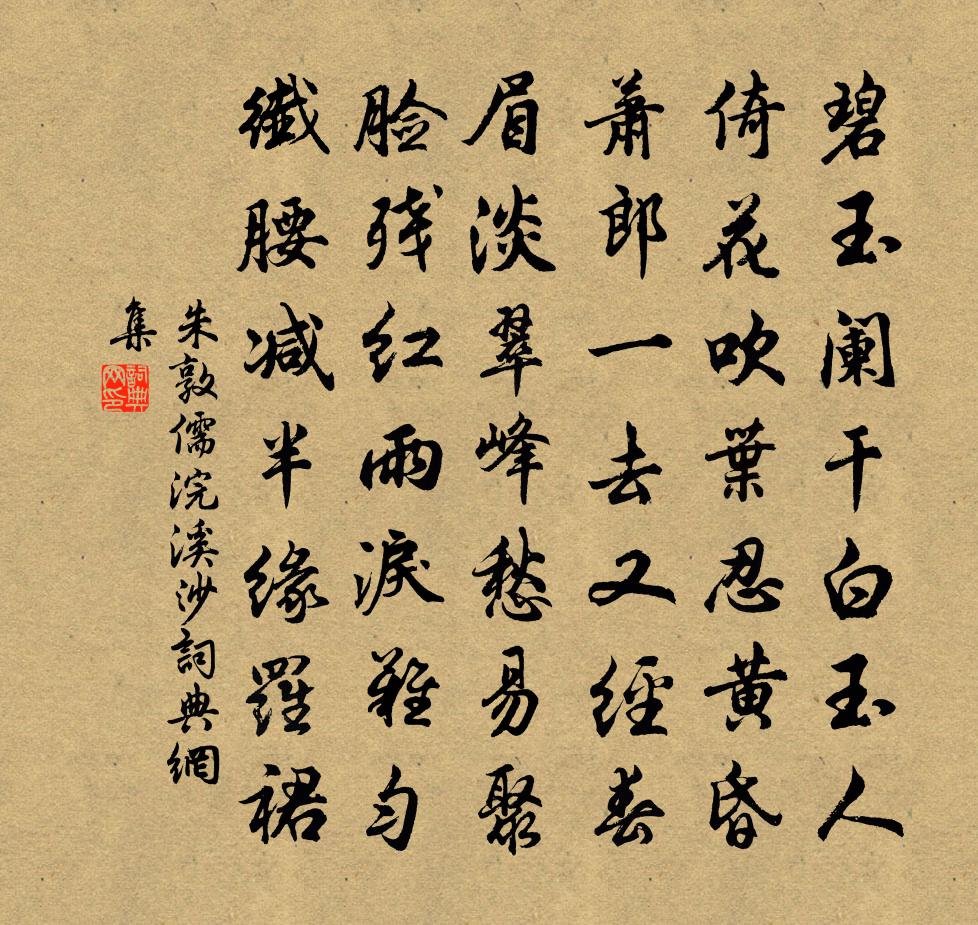 碧玉阑干白玉人
倚花吹葉忍黄昏
萧郎一去又經春
眉淡翠峰愁易聚
脸残红雨淚難匀
纖腰减半缘羅裙
朱敦儒浣溪沙詞典網
集
詞典
网印